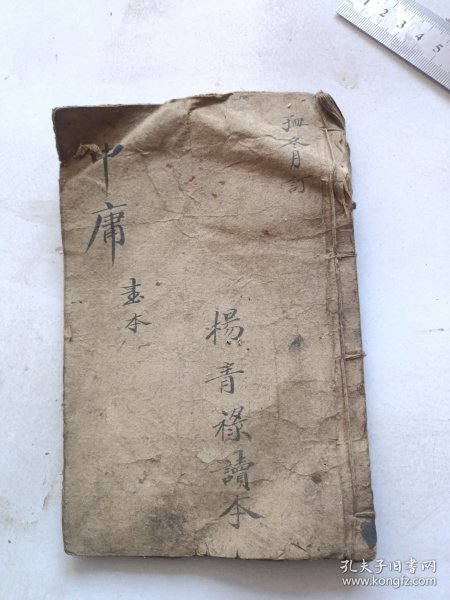 中庸
書本
楊青祿讀本
月訂
孔夫子旧书网
www.kongfz.com
1 2 3 4 5